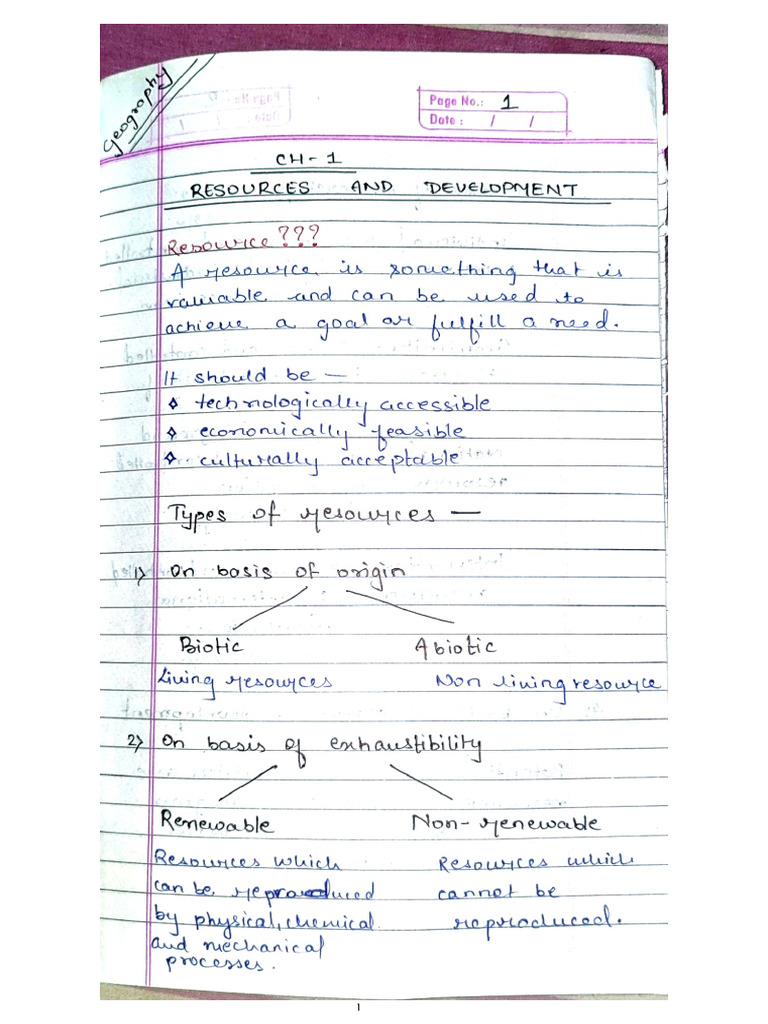 Geography
Page No.: 1
Date : / /
CH-1
RESOURCES AND DEVELOPMENT
Resource???
A resource is something that is
valuable and can be used to
achieve a goal or fulfill a need.
It should be —
technologically accessible
economically feasible
culturally acceptable
Types of resources —
1) On basis of origin
Biotic Abiotic
Living resources Non living resource
2) On basis of exhaustibility
Renewable Non-renewable
Resources which Resources which
can be reproduced cannot be
by physical, chemical reproduced.
and mechanical
processes.
1